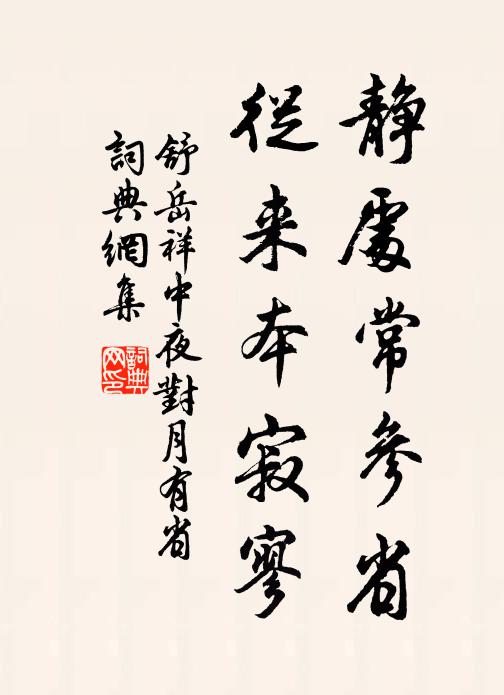 静處常參省
從来本寂寥
舒岳祥中夜對月有省
詞典網集
詞典
网印